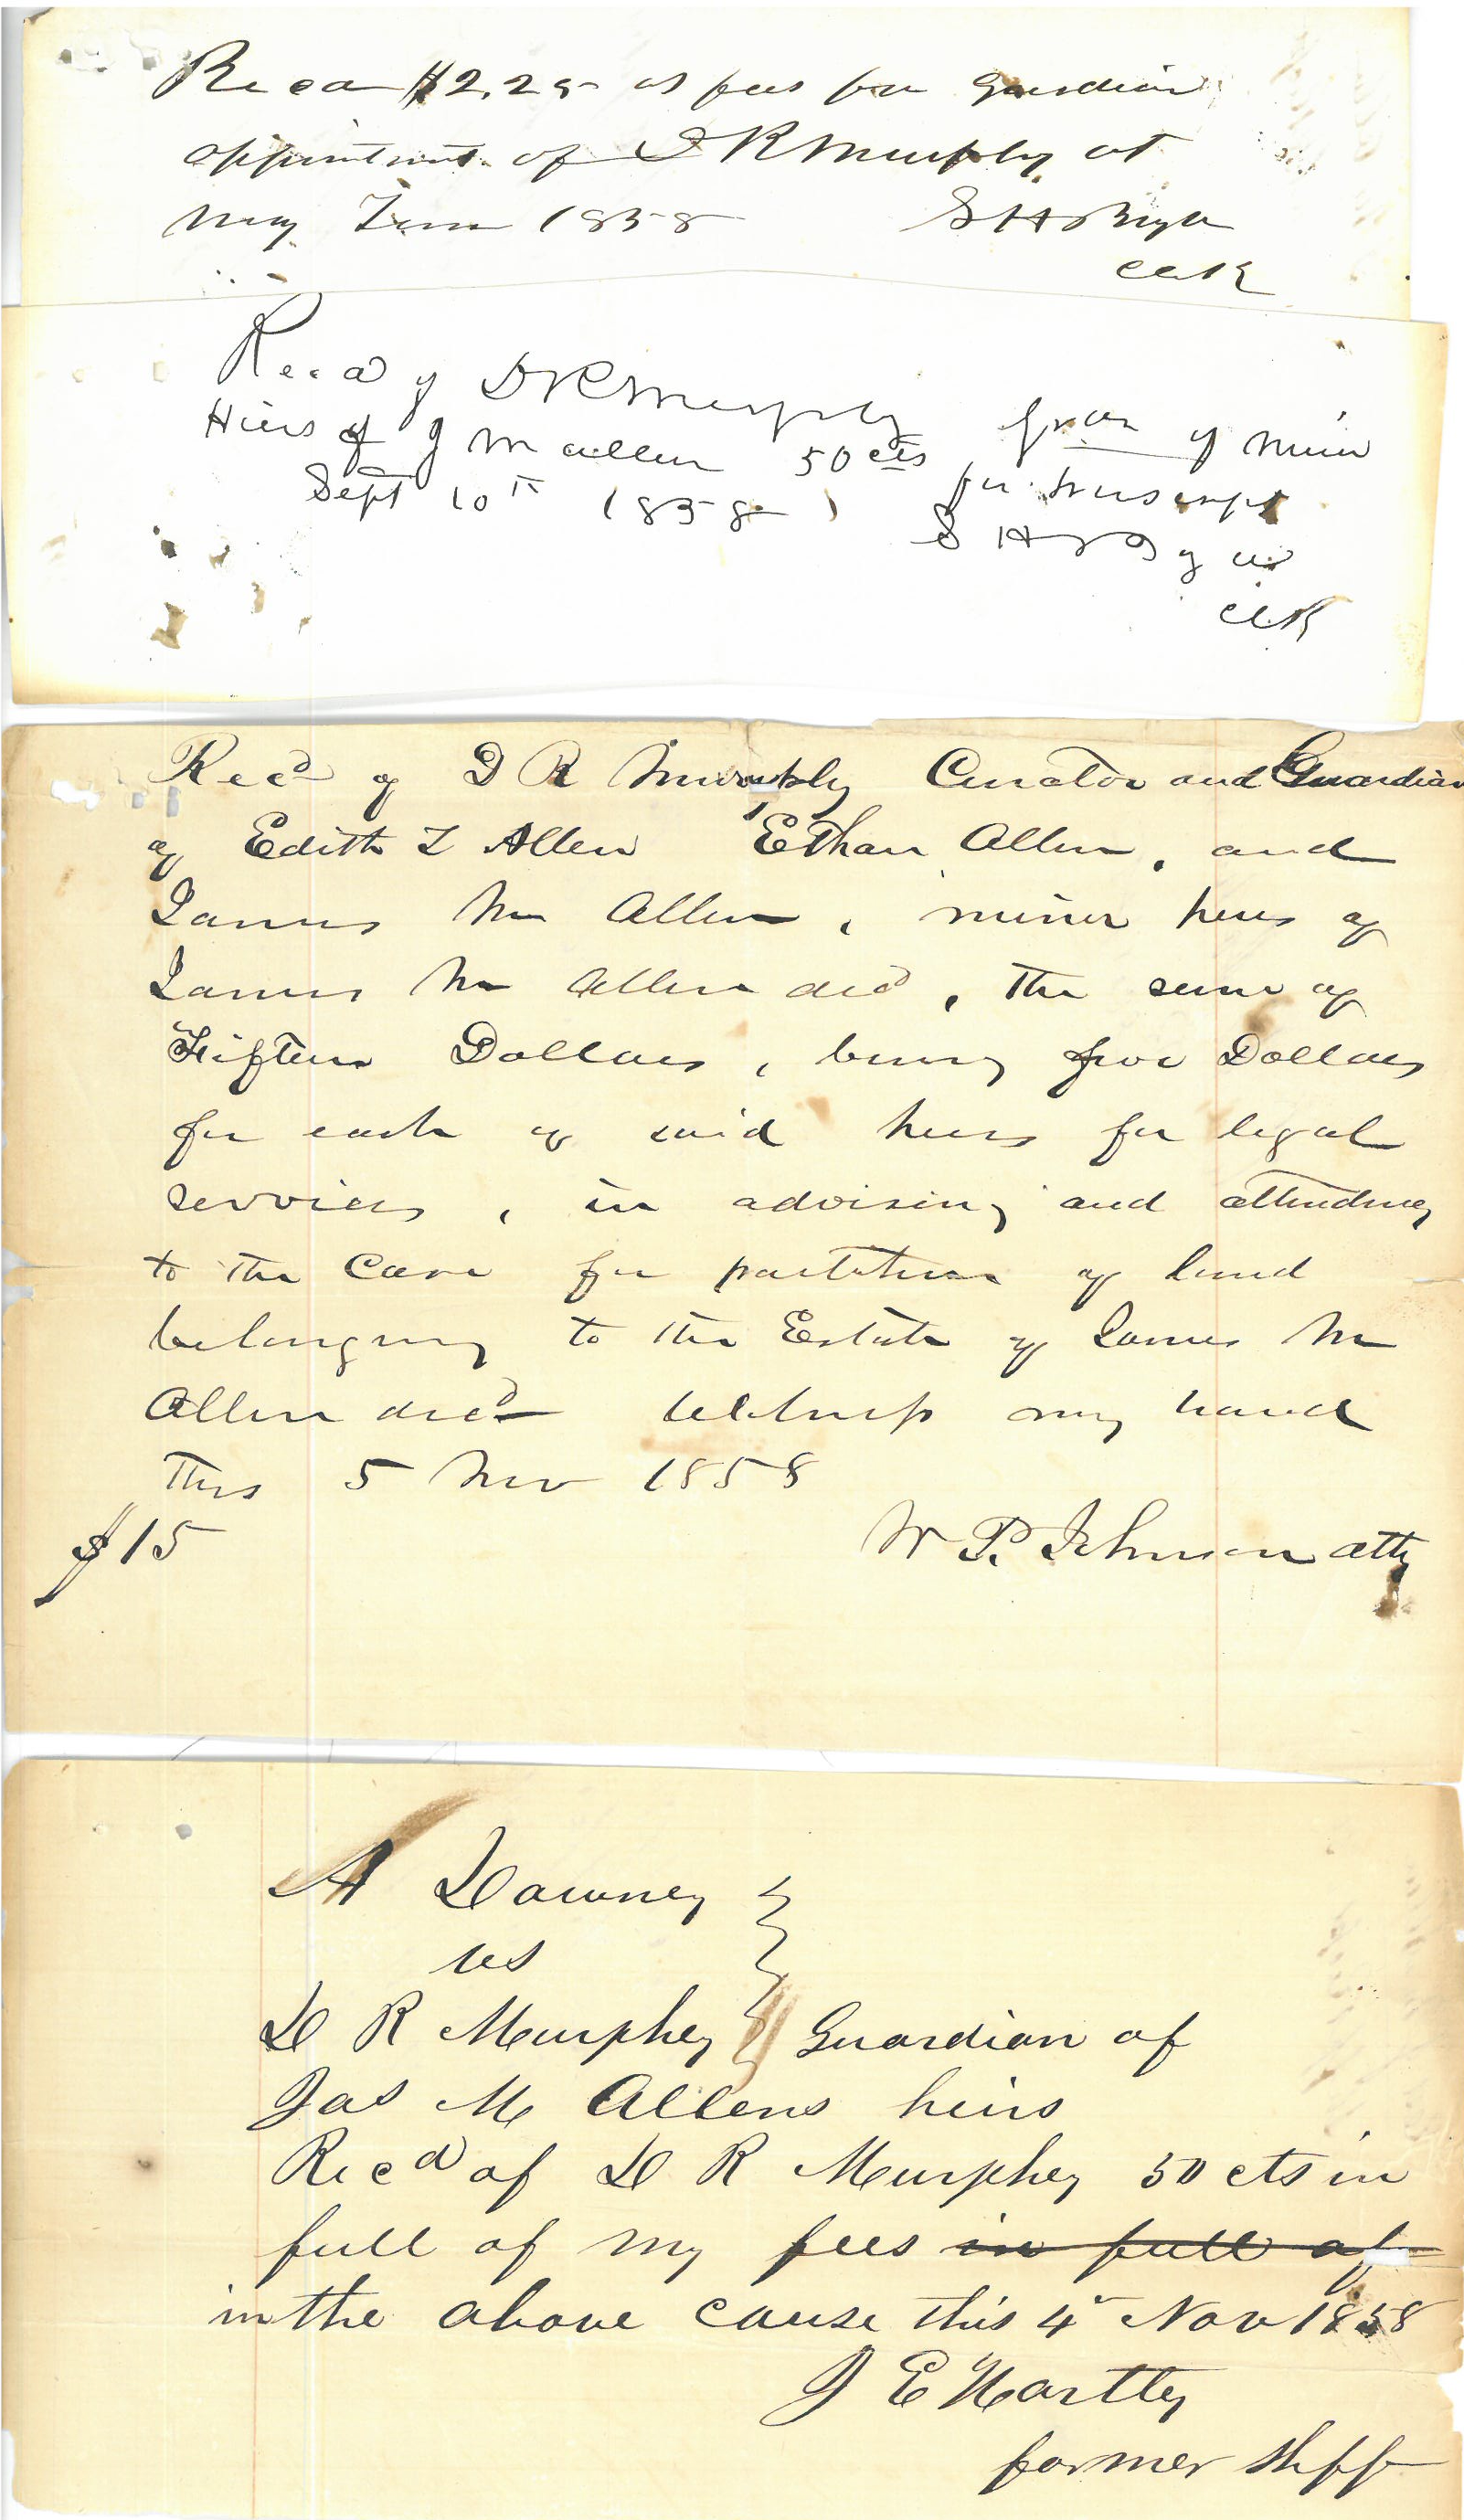 Recd $2.25 as fees for Guardian
appointment of D R Murphy at
May Term 1858 S H
Clk
Recd of D R Murphy Gran of Minor
Hiers of J M Allen 50 cts for transcript
Sept 10th 1858 S H
Clk
Recd of D R Murphy Curator and Guardian
of Edith L Allen Ethan Allen, and
James M Allen, minor heirs of
James M Allen decd, the sum of
Fifteen Dollars, being five Dollars
for each of said heirs for legal
services, in advising and attending
to the Case for partition of land
belonging to the Estate of James M
Allen decd Witness my hand
This 5 Nov 1858
$15 W P. Johnson atty
A Downey
vs
D R Murphey Guardian of
Jas M Allens heirs
Recd of D R Murphey 50 cts in
full of my fees in full of
in the above cause this 4th Nov 1858
J E
former Shff